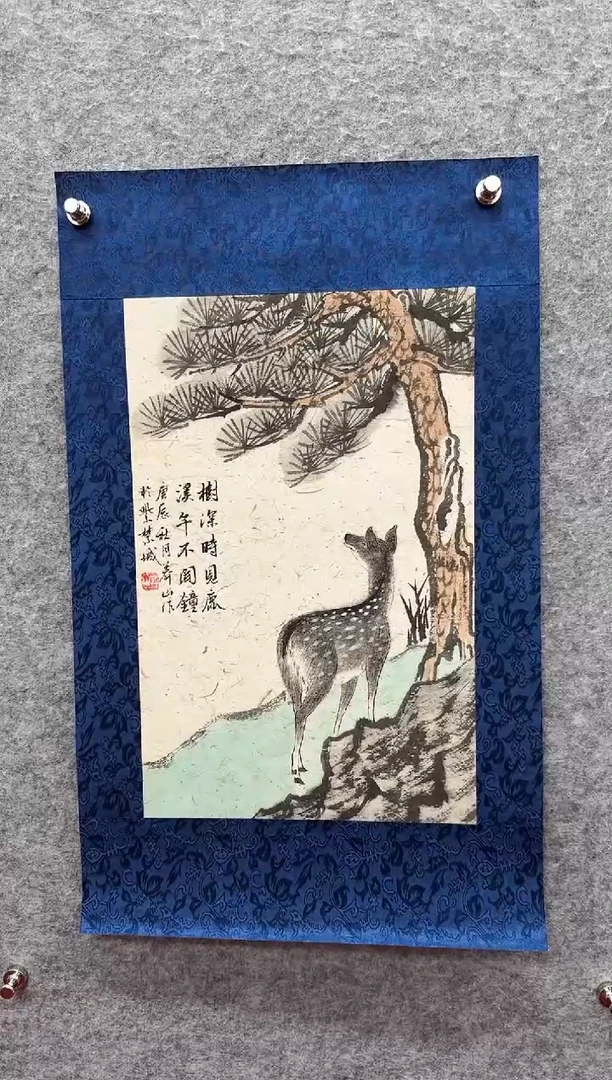 樹深時見鹿
溪午不聞鐘
庚辰秋月莽山作
於紫禁城